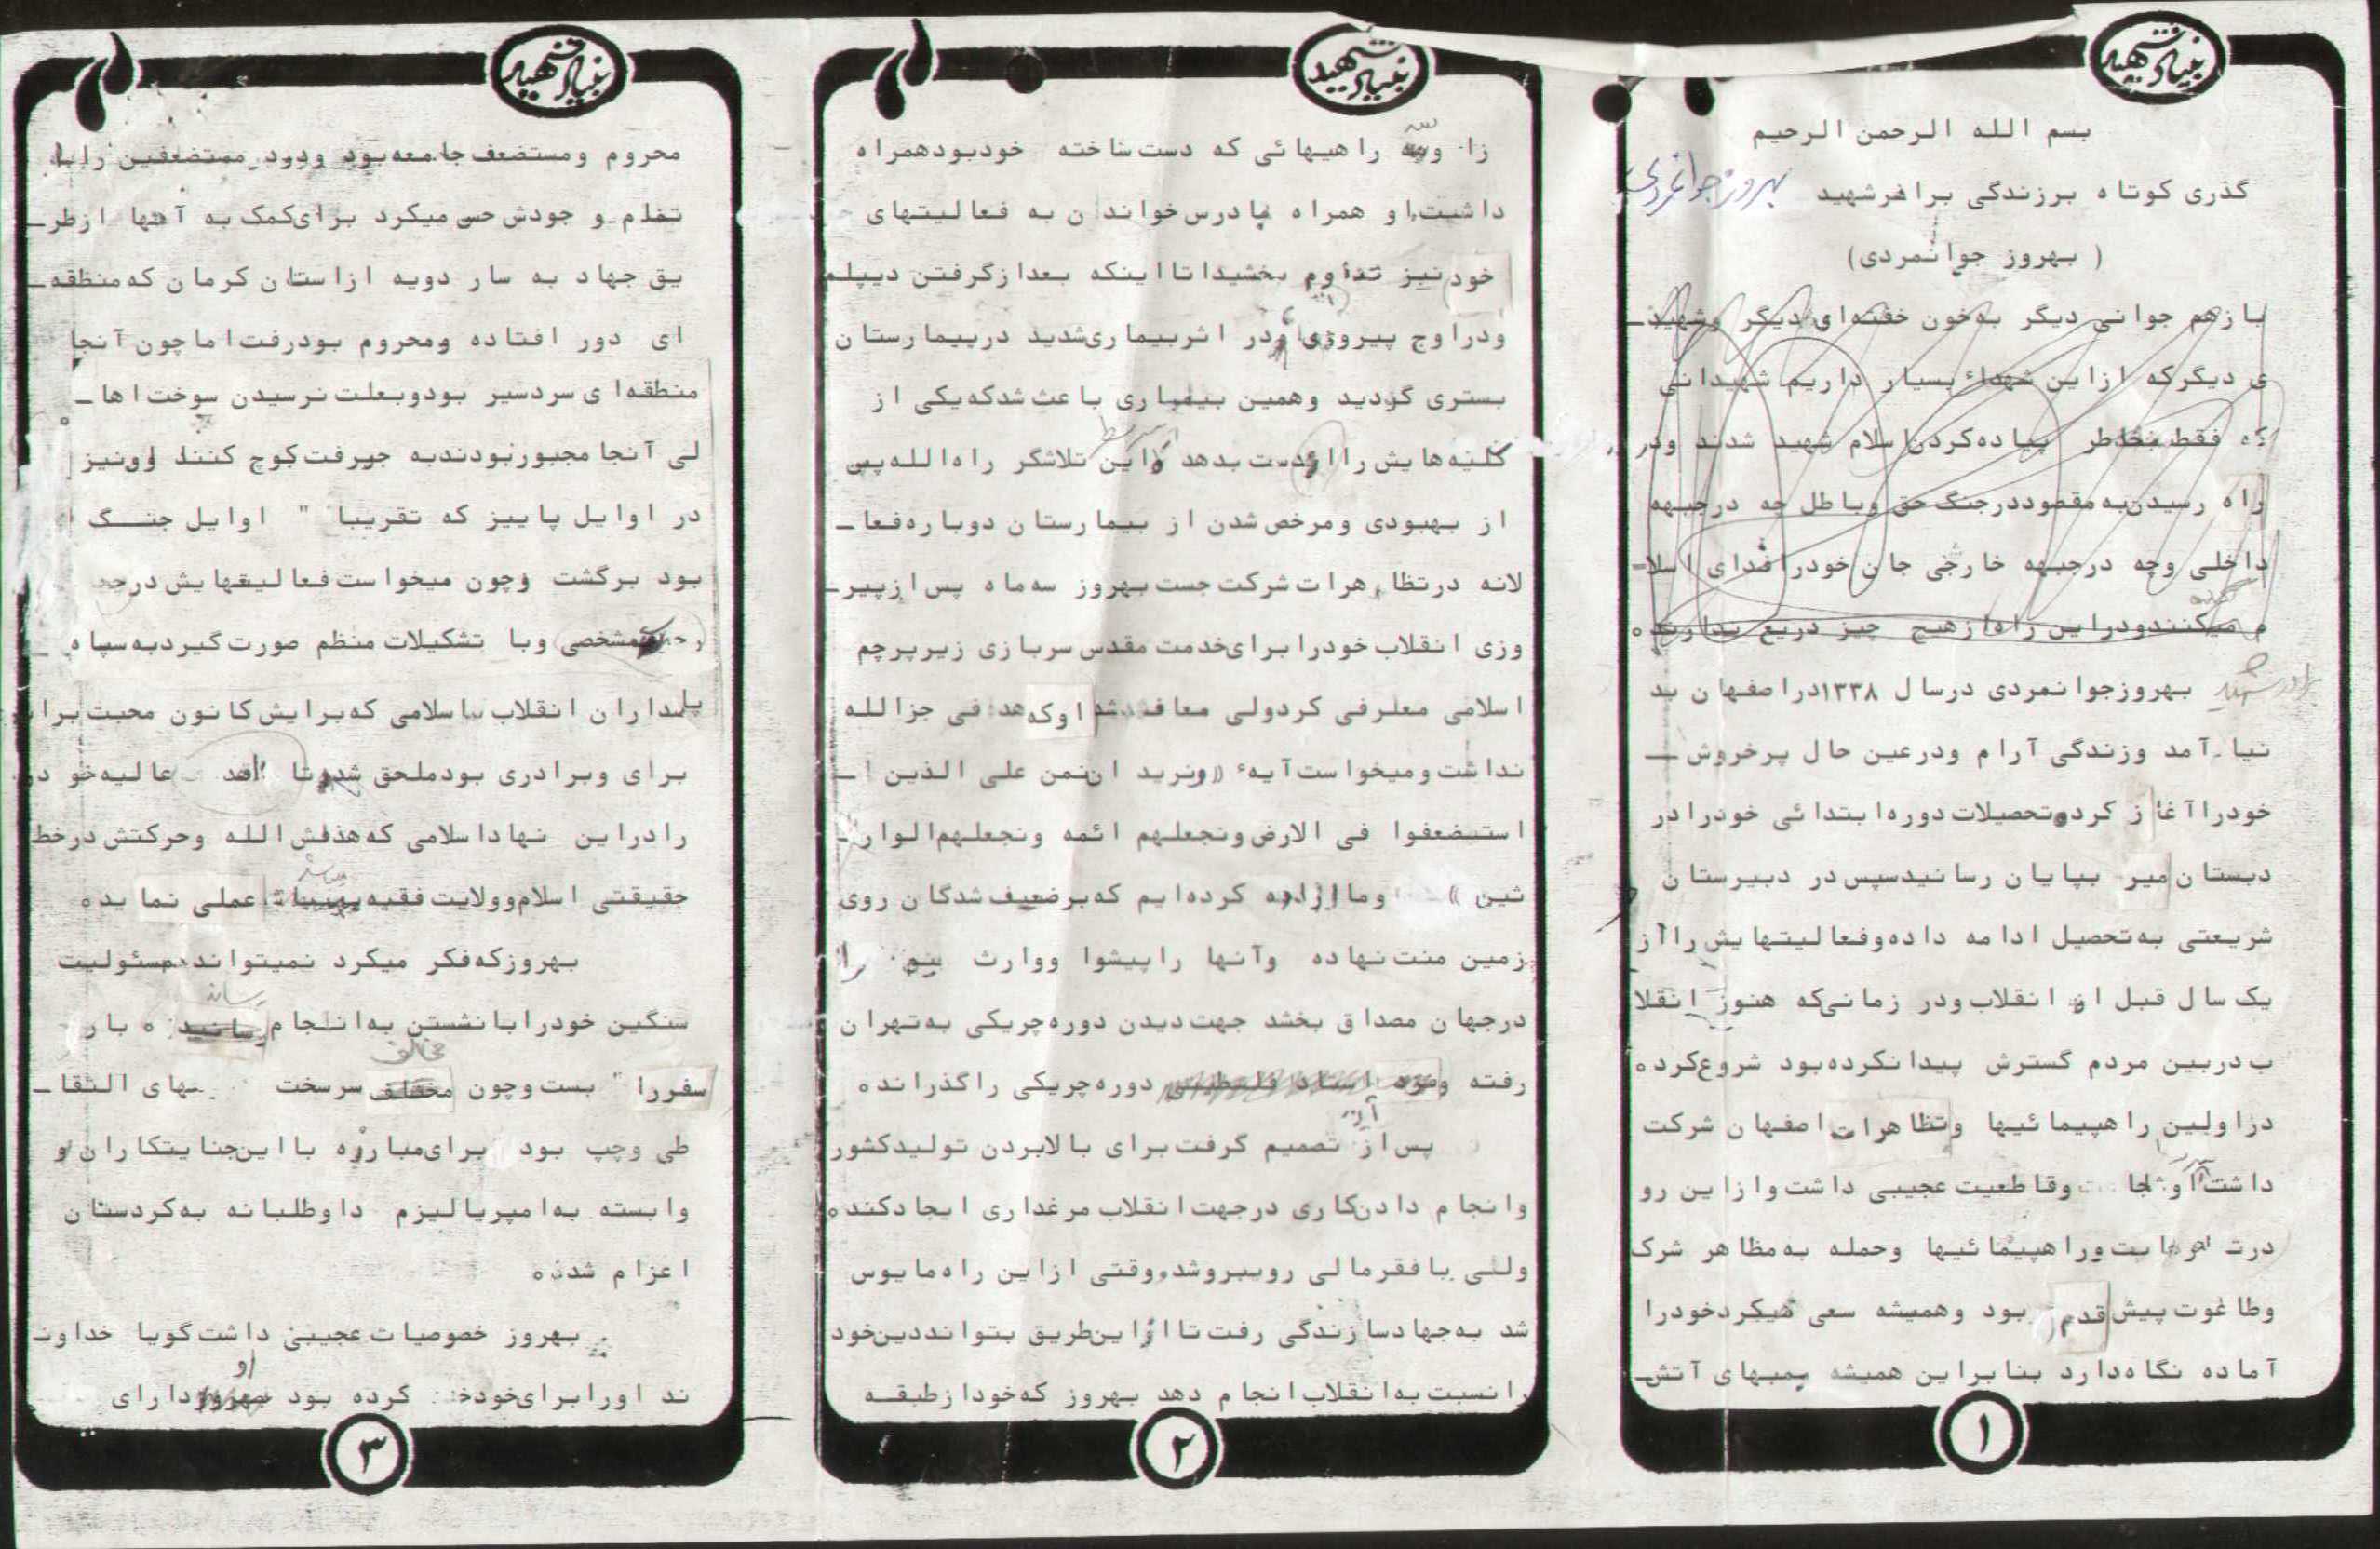 بنیاد شهید
بسم الله الرحمن الرحیم
گذری کوتاه برزندگی برادر شهید بهروز جوانمردی
( بهروز جوانمردی)
بازهم جوانی دیگر به‌خون خفته‌ای دیگر وشهید ـ
ی دیگرکه ازاین شهداء بسیار داریم شهیدانی
که فقط بخاطر پیاده‌کردن اسلام شهید شدند ودر
راه رسیدن به مقصوددرجنگ حق وباطل چه درجبهه
داخلی وچه درجبهه خارجی جان خودرافدای اسلا ـ
م میکنندودراین راه ازهیچ چیز دریغ ندارند ه
برادر شهید بهروزجوانمردی درسال ۱۳۳۸دراصفهان بد
نیا آمد وزندگی آرام ودرعین حال پرخروش ـ
خودراآغاز کردوتحصیلات دوره‌ابتدائی خودرادر
دبستان میر بپایان رسانیدسپس در دبیرستان
شریعتی به‌تحصیل ادامه داده‌وفعالیتهایش رااز
یک سال قبل از انقلاب ودر زمانی‌که هنوز انقلا
ب دربین مردم گسترش پیدا نکرده‌بود شروع‌کرد ه
دراولین راهپیمائیها وتظاهرات اصفهان شرکت
داشت او وقاطعیت عجیبی داشت وازاین رو
وراهپیمائیها وحمله به‌مظاهر شرک
وطاغوت پیش قدم بود وهمیشه سعی میکردخودرا
آماده نگاه‌دارد بنابراین همیشه بمبهای آتش ـ
۱
بنیاد شهید
زا و راهیهائی که دست ساخته خودبودهمراه
داشت‌.او همراه بادرس خواندن به فعالیتهای
خود نیز تداوم بخشیدتااینکه بعدازگرفتن دیپلم
ودراوج پیروزی ودر اثربیماری‌شدید دربیمارستان
بستری گردید وهمین بیماری باعث شدکه‌یکی از
کلیه‌هایش راازدست بدهد واین تلاشگر راه‌الله‌پس
از بهبودی ومرخص شدن از بیمارستان دوباره‌فعا ـ
لانه درتظاهرات شرکت جست بهروز سه‌ماه پس‌ازپیر ـ
وزی انقلاب خودرابرای‌خدمت مقدس سربازی زیرپرچم
اسلامی معرفی کردولی معاف شد اوکه‌هدفی جزالله
نداشت ومیخواست آیه‌ء «ونرید ان‌نمن علی الذین ا ـ
استضعفوا فی الارض ونجعلهم ائمه ونجعلهم‌الوار ـ
ثین » وما اراده کرده‌ایم که‌برضعیف شدگان روی
زمین منت نهاده وآنها راپیشوا ووارث را
درجهان مصداق بخشد جهت دیدن دوره‌چریکی به‌تهران
رفته دوره‌چریکی راگذراند ه
پس‌از آن تصمیم گرفت برای بالابردن تولیدکشور
وانجام دادن‌کاری درجهت انقلاب مرغداری ایجادکند ه
ولی بافقرمالی روبروشد.وقتی ازاین راه‌مایوس
شد به‌جهادسازندگی رفت تاازاین‌طریق بتوانددین‌خود
رانسبت به‌انقلاب‌انجام دهد بهروز که‌خودازطبقه
۲
بنیاد شهید
محروم ومستضعف‌جامعه‌بود ودرد مستضعفین رابا
تمام وجودش حس میکرد برای‌کمک به آنها ازطر ـ
یق جهاد به سار دویه ازاستان کرمان که‌منطقه ـ
ای دور افتاده ومحروم بودرفت‌اماچون آنجا
منطقه‌ای سردسیر بودوبعلت نرسیدن سوخت اها ـ
لی آنجا مجبوربودندبه جیرفت‌کوچ کنند اونیز
در اوایل پاییز که تقریبا " اوایل جنگ
بود برگشت وچون میخواست فعالیتهایش درجه
مشخصی وبا تشکیلات منظم صورت گیردبه‌سپاه
پاسداران انقلاب اسلامی که‌برایش‌کانون محبت‌برا
برای وبرادری بودملحق شدوتا عالیه‌خود
رادراین نهاداسلامی که‌هدفش‌الله وحرکتش درخط
حقیقتی اسلام‌وولایت فقیه عملی نماید ه
بهروزکه‌فکر میکرد نمیتواند مسئولیت
سنگین خودرابانشستن به‌انجام رساند ه بار
سفررا بست وچون مخالف سرسخت التقا ـ
طی وچپ بود برای‌مبارزه بااین‌جنایتکاران و
وابسته به‌امپریالیزم داوطلبانه به‌کردستان
اعزام شد ه
بهروز خصوصیات عجیبی داشت‌گویا خداوند
ند اورابرای‌خود کرده بود او دارای
۳